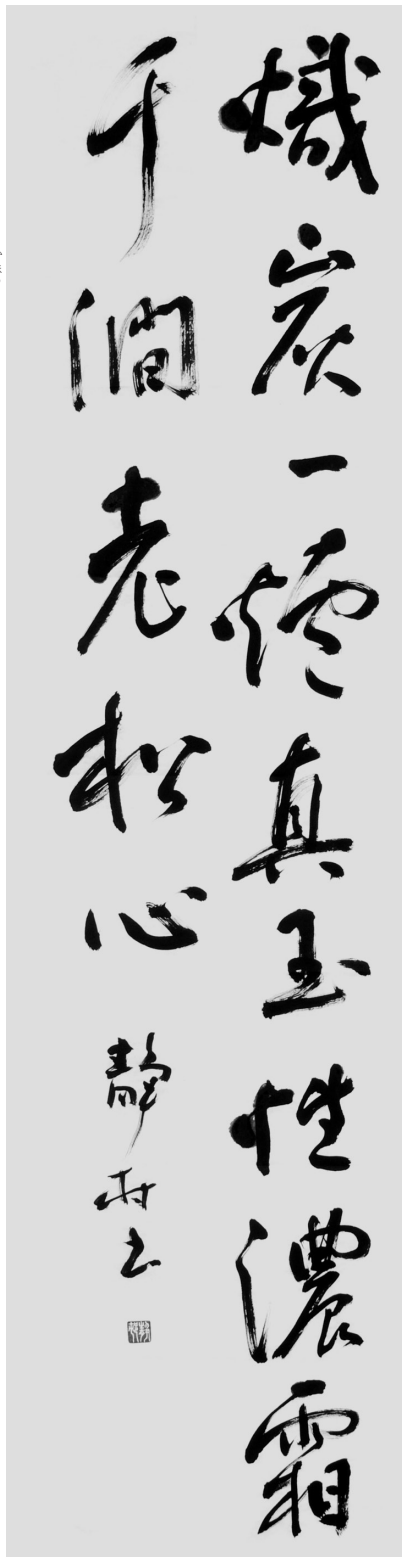 熾炭一爐真玉性濃霜
千澗老松心
静村書